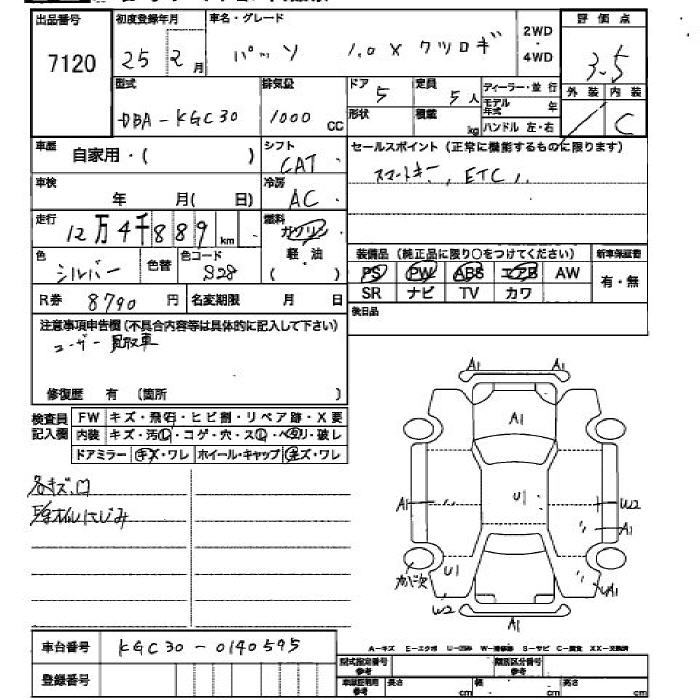 出品番号 初度登録年月 車名・グレード 2WD・4WD 評価点
7120 25 2月 パッソ 1.0 X クツロギ 3.5
型式 排気量 ドア 定員 ディーラー・並行 外装 内装
DBA-KGC30 1000 CC 5 5人 モデル年式 年 C
形状 積載 kg ハンドル 左・右
車歴 自家用・( ) シフト CAT セールスポイント(正常に機能するものに限ります)
車検 年 月( 日) 冷房 AC スマートキー, ETC
走行 12万4千889km 燃料 ガソリン
軽・油
( )
色 シルバー 色替 色コード S28
装備品(純正品に限り〇をつけてください) 新車保証書
PS PW ABS エアB AW 有・無
SR ナビ TV カワ
R券 8790円 名変期限 月 日
後日品
注意事項申告欄(不具合内容等は具体的に記入して下さい)
ユーザー買取車
修復歴 有 (箇所 )
検査員記入欄 FW キズ・飛石・ヒビ割・リペア跡・X要
内装 キズ・汚レ・コゲ・穴・スレ・ヘタリ・破レ
ドアミラー キズ・ワレ ホイール・キャップ キズ・ワレ
各キズ凹
A1 A1
A1
A1 U1 W2
A1
ガバ次 U1 UA1
W2 A1
車台番号 KGC30-0140595
A-キズ E-エクボ U-凹み W-補修跡 S-サビ C-腐食 XX-交換済
登録番号 型式指定番号 参考 類別区分番号 参考
車庫証明用 参考 長さ cm 幅 cm 高さ cm